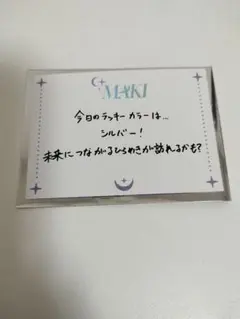 MAKI
今日のラッキーカラーは...
シルバー!
未来につながるひらめきが訪れるかも?